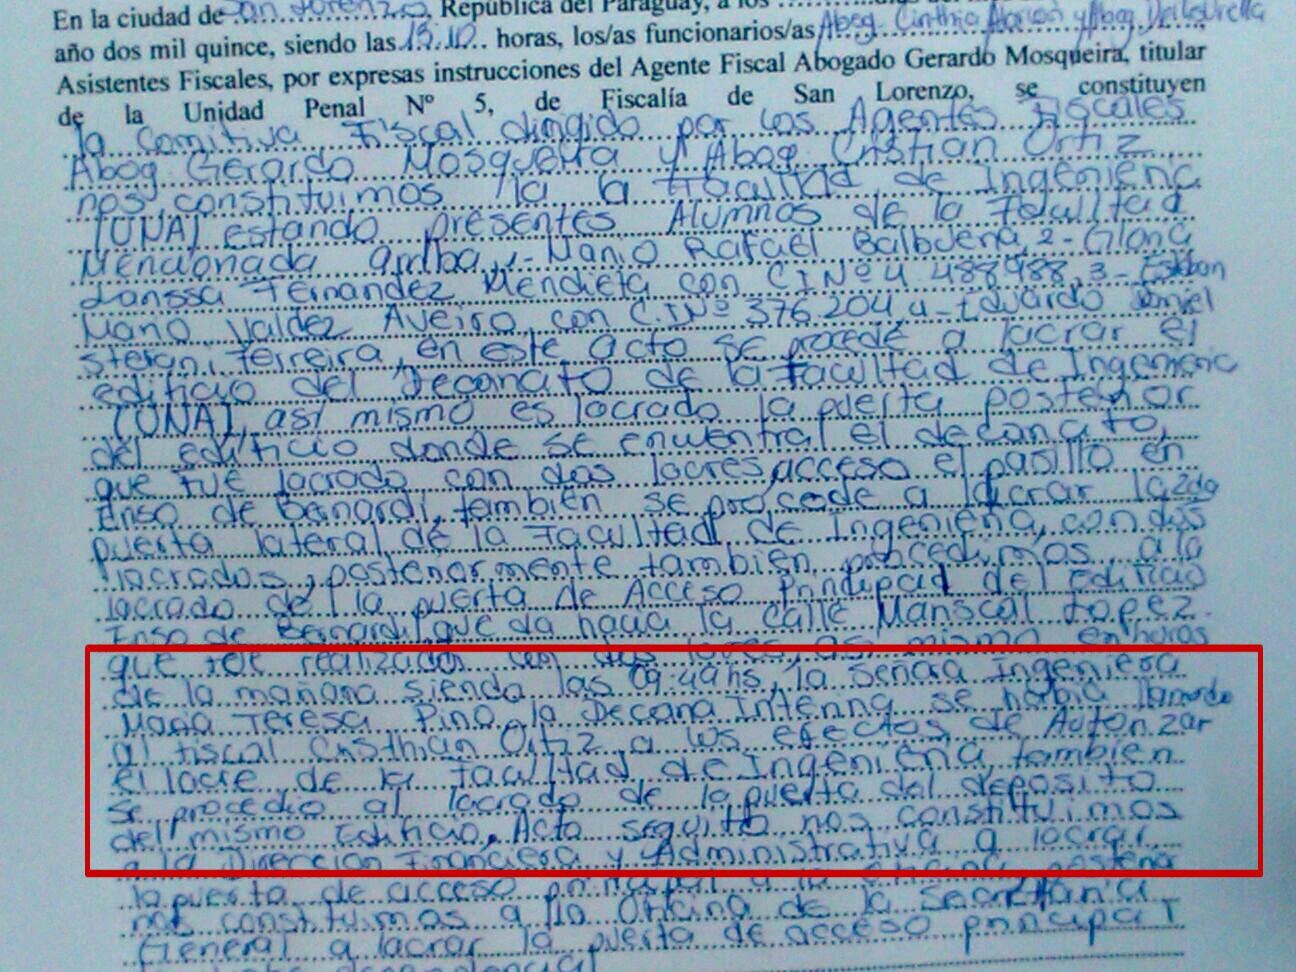 En la ciudad de San Lorenzo, República del Paraguay, a los
año dos mil quince, siendo las 15:10 horas, los/as funcionarios/as Abog. Cinthia y Abog.
Asistentes Fiscales, por expresas instrucciones del Agente Fiscal Abogado Gerardo Mosqueira, titular
de la Unidad Penal Nº 5, de Fiscalía de San Lorenzo, se constituyen
la Comitiva Fiscal dirigido por los Agentes Fiscales
Abog. Gerardo Mosqueira y Abog. Cristian Ortiz
nos constituimos a la Facultad de Ingenieria
(UNA) estando presentes Alumnos de la Facultad
Mencionada arriba, 1- Mario Rafael Balbuena, 2- Gloria
Larissa Fernandez Mendieta con C.I Nº 4.488988, 3- Esteban
Mario Valdez Aveiro, con C.I Nº 376.204, 4- Eduardo Daniel
Stefani Ferreira, en este acto se procede a lacrar el
edificio del Decanato de la Facultad de Ingenieria
(UNA), asi mismo es lacrado la puerta posterior
del edificio donde se encuentra el decanato,
que fue lacrado con dos lacres, acceso el pasillo en
Enso de Banardi, también se procede a lacrar la 2da
puerta lateral de la Facultad de Ingenieria, con dos
lacrados, posteriormente tambien procedimos a la
lacrado de la puerta de Acceso Principal del Edificio
Enso de Benardi, que da hacia la calle Mariscal Lopez.
que fue realizado con dos lacres, asi mismo en horas
de la mañana siendo las 09:44hs, la señora Ingeniera
Maria Teresa Pino, la Decana Interina se habia llamado
al fiscal Cristhian Ortiz a los efectos de Autorizar
el lacre de la Facultad de Ingenieria, tambien
se procedio al lacrado de la puerta del deposito
del mismo Edificio, Acto seguito nos constituimos
a la Direccion Financiera y Administrativa a lacrar
la puerta de acceso principal a la oficina, posterior
nos constituimos a la Oficina de la Secretaria
General a lacrar la puerta de acceso principal